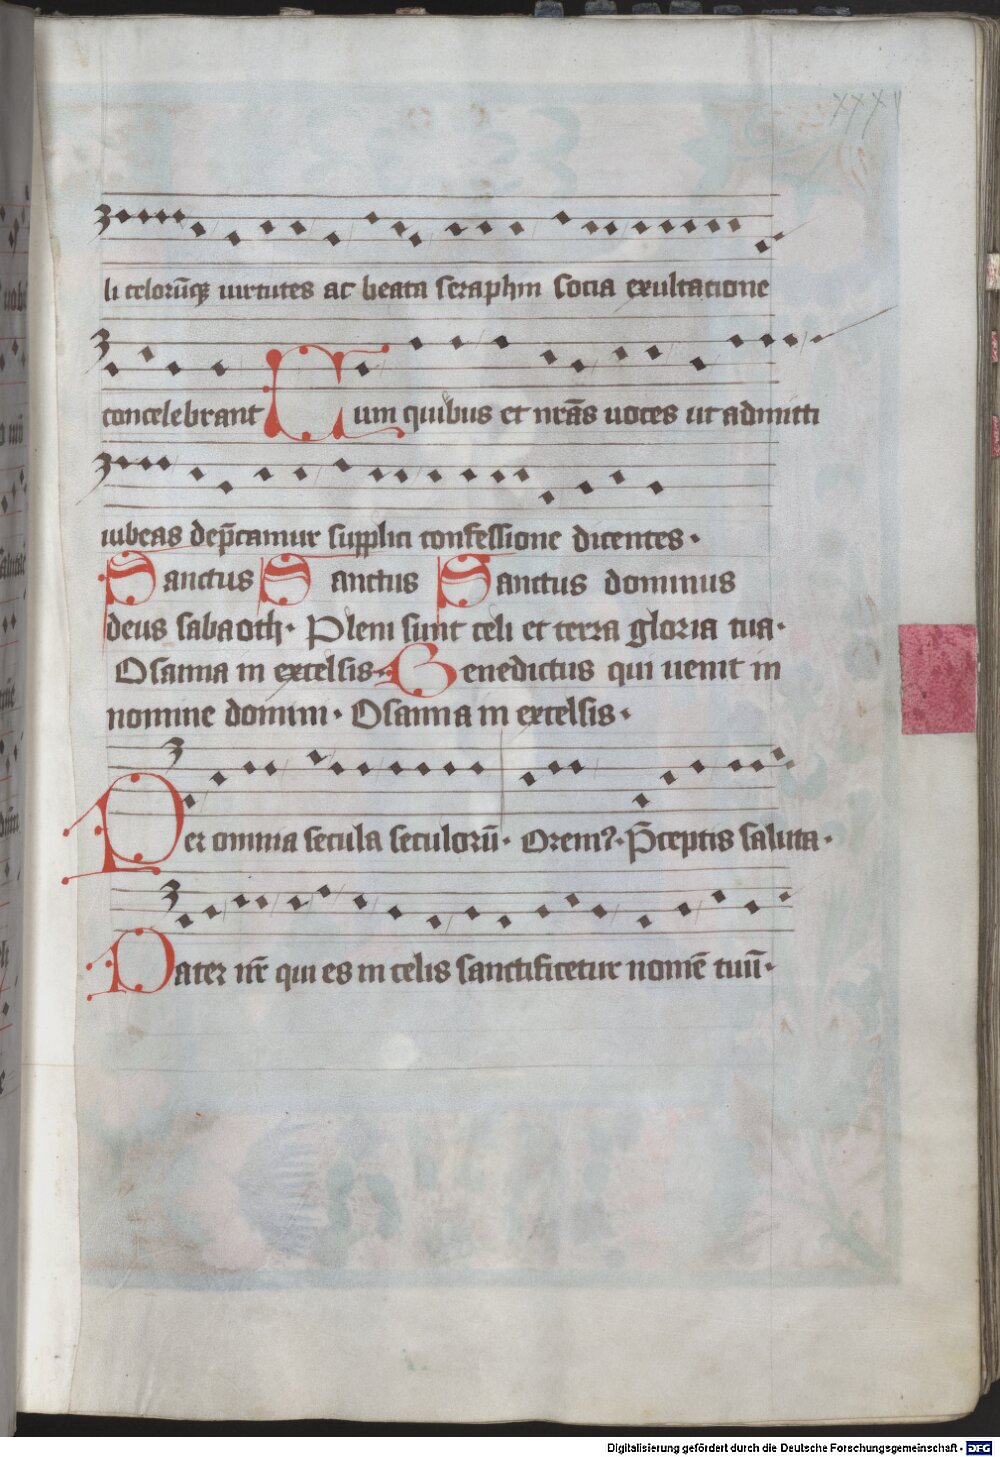 xxxv
li celorūqꝫ uirtutes ac beata seraphin socia exultatione
concelebrant Cum quibus et nr̄as uoces ut admitti
iubeas dep̄camur supplici confessione dicentes·
Sanctus Sanctus Sanctus dominus
deus sabaoth· Pleni sunt celi et terra gloria tua·
Osanna in excelsis· Benedictus qui uenit in
nomine domini· Osanna in excelsis·
Per omnia secula seculorū· Orem?· P̄ceptis saluta·
Pater nr̄ qui es in celis sanctificetur nomē tuū·
Digitalisierung gefördert durch die Deutsche Forschungsgemeinschaft - DFG